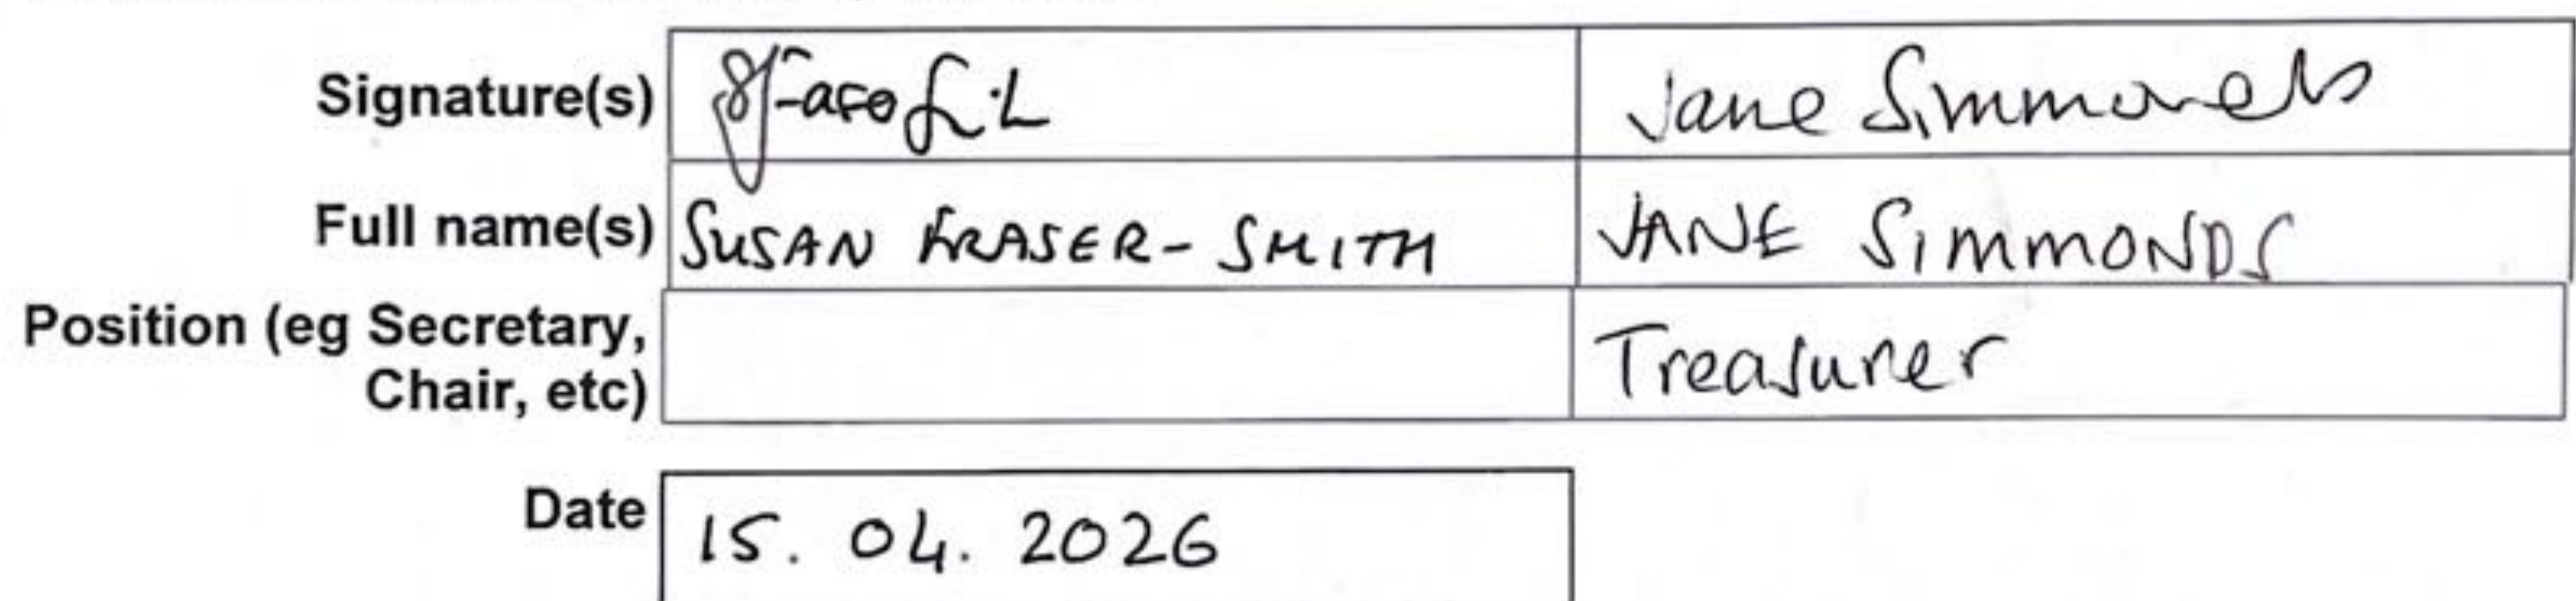 Signature(s) Jane Simmonds
Full name(s) SUSAN FRASER-SMITH JANE SIMMONDS
Position (eg Secretary,
Chair, etc) Treasurer
Date 15. 04. 2026